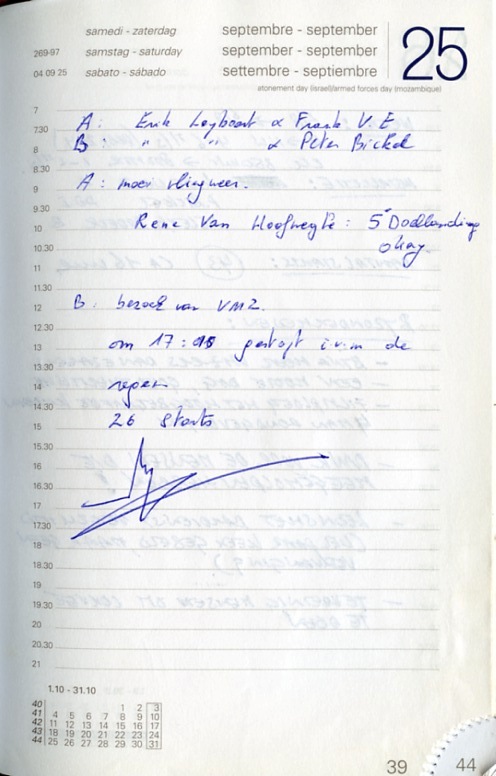 samedi - zaterdag septembre - september
269-97 samstag - saturday september - september 25
04 09 25 sabato - sábado settembre - septiembre
atonement day (israel)/armed forces day (mozambique)
7
7.30 A: Erik & Frank V. E
8 B: " " & Peter Bickel
8.30
9 A: mooi vliegweer.
9.30
10 Rene Van Hoofwegte: 5e Doellanding
10.30 okay
11
11.30
12 B: bezoek van VM2.
12.30
13 om 17: gestopt i.v.m de
13.30
14 regen
14.30
15 26 Starts
15.30
16
16.30
17
17.30
18
18.30
19
19.30
20
20.30
21
1.10 - 31.10
40 1 2 3
41 4 5 6 7 8 9 10
42 11 12 13 14 15 16 17
43 18 19 20 21 22 23 24
44 25 26 27 28 29 30 31
39 44